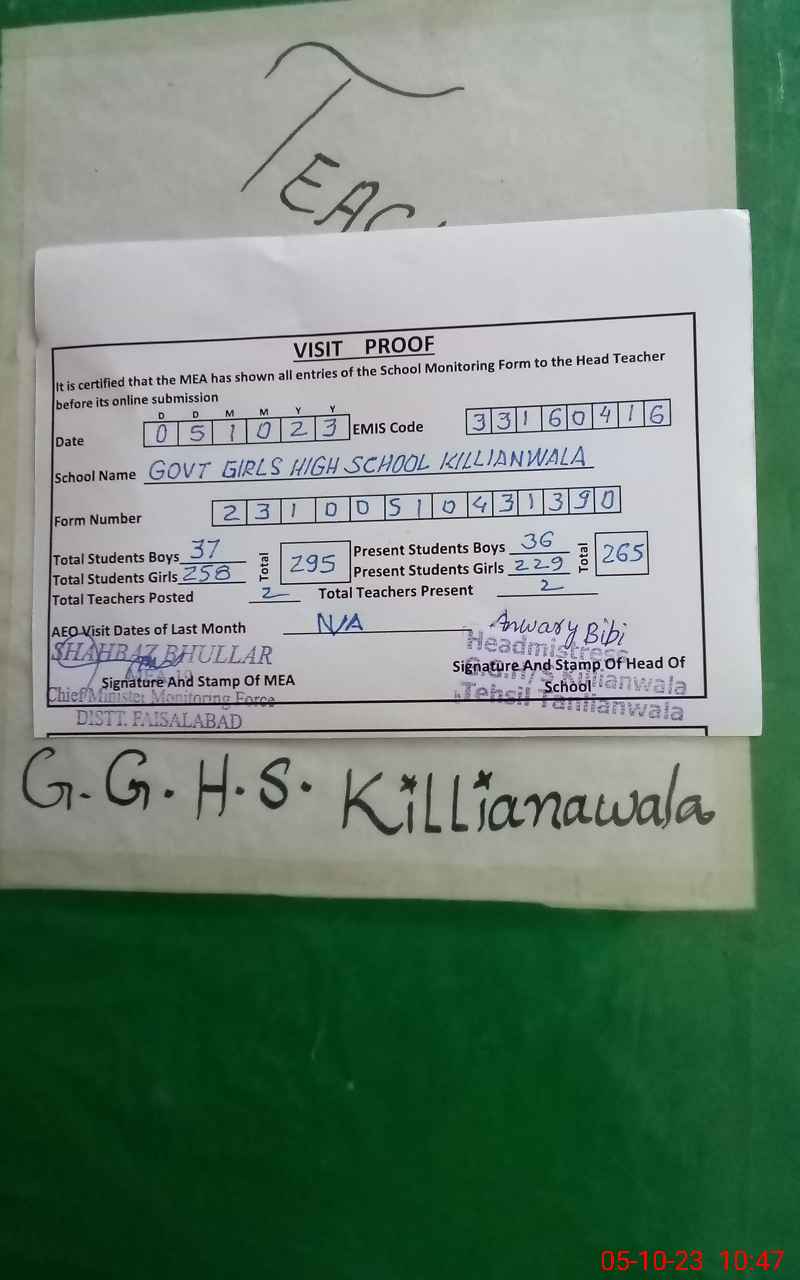 TEAC
VISIT PROOF
It is certified that the MEA has shown all entries of the School Monitoring Form to the Head Teacher
before its online submission
D D M M Y Y
Date 0 5 1 0 2 3 EMIS Code 3 3 1 6 0 4 1 6
School Name GOVT GIRLS HIGH SCHOOL KILLIANWALA
Form Number 2 3 1 0 0 5 1 0 4 3 1 3 9 0
Total Students Boys 37 Total 295 Present Students Boys 36 Total 265
Total Students Girls 258 Present Students Girls 229
Total Teachers Posted 2 Total Teachers Present 2
AEO Visit Dates of Last Month N/A Anwary Bibi
SHAHBAZ BHULLAR Headmistress
Signature And Stamp Of MEA Signature And Stamp Of Head Of
School
Killianwala
Chief Minister Monitoring Force
Tehsil Tandlianwala
DISTT. FAISALABAD
G.G.H.S. Killianawala
05-10-23 10:47